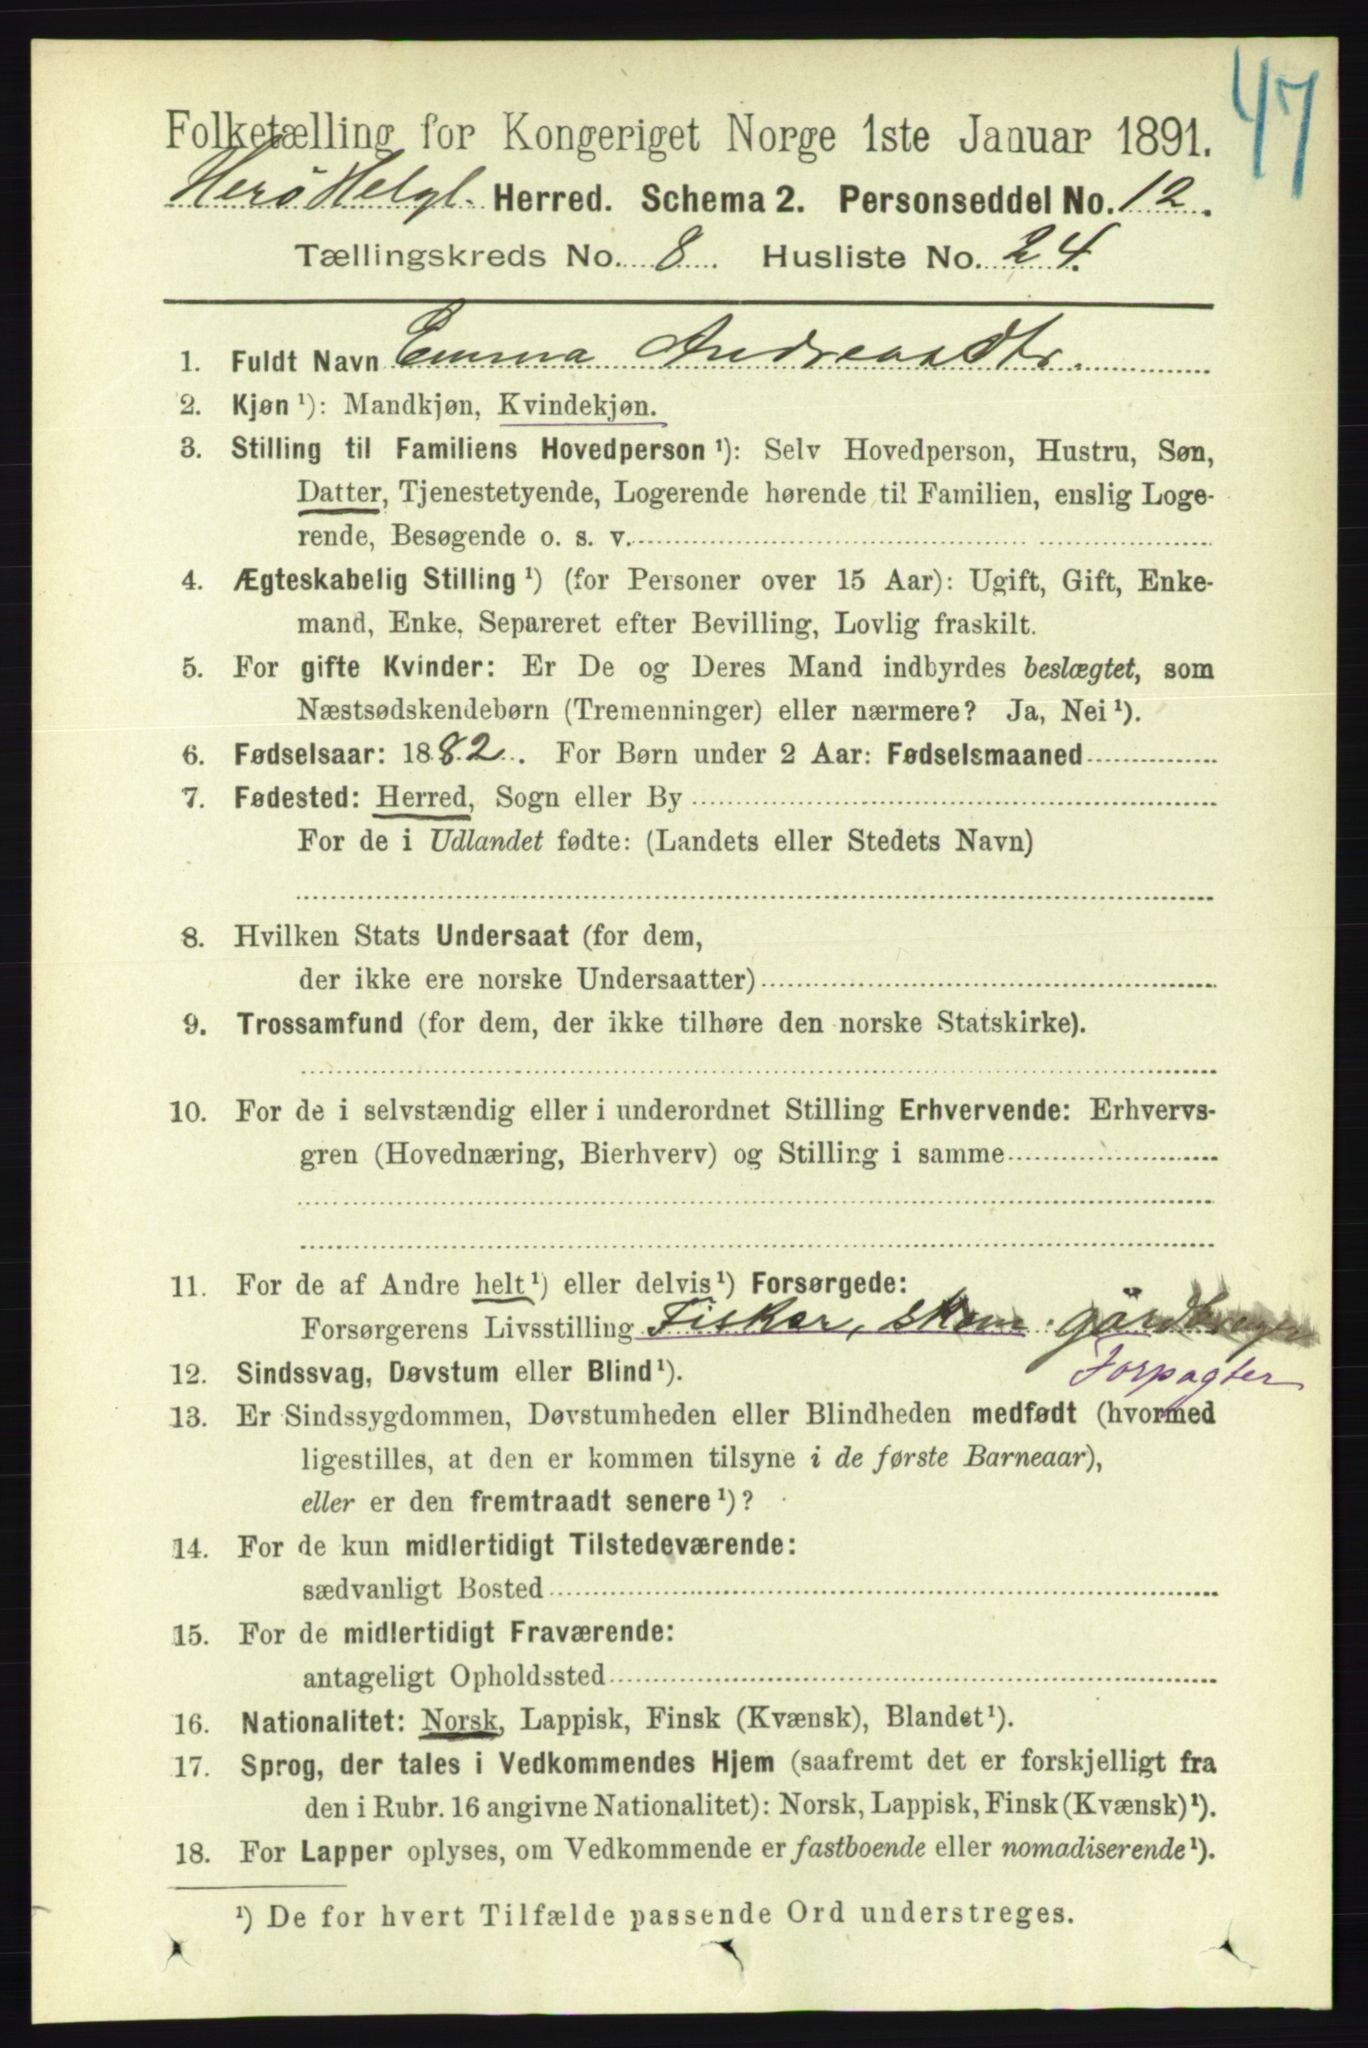 47
Folketælling for Kongeriget Norge 1ste Januar 1891.
Herø Helgl. Herred. Schema 2. Personseddel No. 12.
Tællingskreds No. 8. Husliste No. 24.
1. Fuldt Navn Emma Andreasdtr.
2. Kjøn ¹): Mandkjøn, Kvindekjøn.
3. Stilling til Familiens Hovedperson ¹): Selv Hovedperson, Hustru, Søn,
Datter, Tjenestetyende, Logerende hørende til Familien, enslig Loge-
rende, Besøgende o. s. v.
4. Ægteskabelig Stilling ¹) (for Personer over 15 Aar): Ugift, Gift, Enke-
mand, Enke, Separeret efter Bevilling, Lovlig fraskilt.
5. For gifte Kvinder: Er De og Deres Mand indbyrdes beslægtet, som
Næstsødskendebørn (Tremenninger) eller nærmere? Ja, Nei ¹).
6. Fødselsaar: 1882. For Børn under 2 Aar: Fødselsmaaned
7. Fødested: Herred, Sogn eller By
For de i Udlandet fødte: (Landets eller Stedets Navn)
8. Hvilken Stats Undersaat (for dem,
der ikke ere norske Undersaatter)
9. Trossamfund (for dem, der ikke tilhøre den norske Statskirke).
10. For de i selvstændig eller i underordnet Stilling Erhvervende: Erhvervs-
gren (Hovednæring, Bierhverv) og Stilling i samme
11. For de af Andre helt ¹) eller delvis ¹) Forsørgede:
Forsørgerens Livsstilling Fisker,
Forpagter
12. Sindssvag, Døvstum eller Blind ¹).
13. Er Sindssygdommen, Døvstumheden eller Blindheden medfødt (hvormed
ligestilles, at den er kommen tilsyne i de første Barneaar),
eller er den fremtraadt senere ¹)?
14. For de kun midlertidigt Tilstedeværende:
sædvanligt Bosted
15. For de midlertidigt Fraværende:
antageligt Opholdssted
16. Nationalitet: Norsk, Lappisk, Finsk (Kvænsk), Blandet ¹).
17. Sprog, der tales i Vedkommendes Hjem (saafremt det er forskjelligt fra
den i Rubr. 16 angivne Nationalitet): Norsk, Lappisk, Finsk (Kvænsk) ¹).
18. For Lapper oplyses, om Vedkommende er fastboende eller nomadiserende ¹).
¹) De for hvert Tilfælde passende Ord understreges.